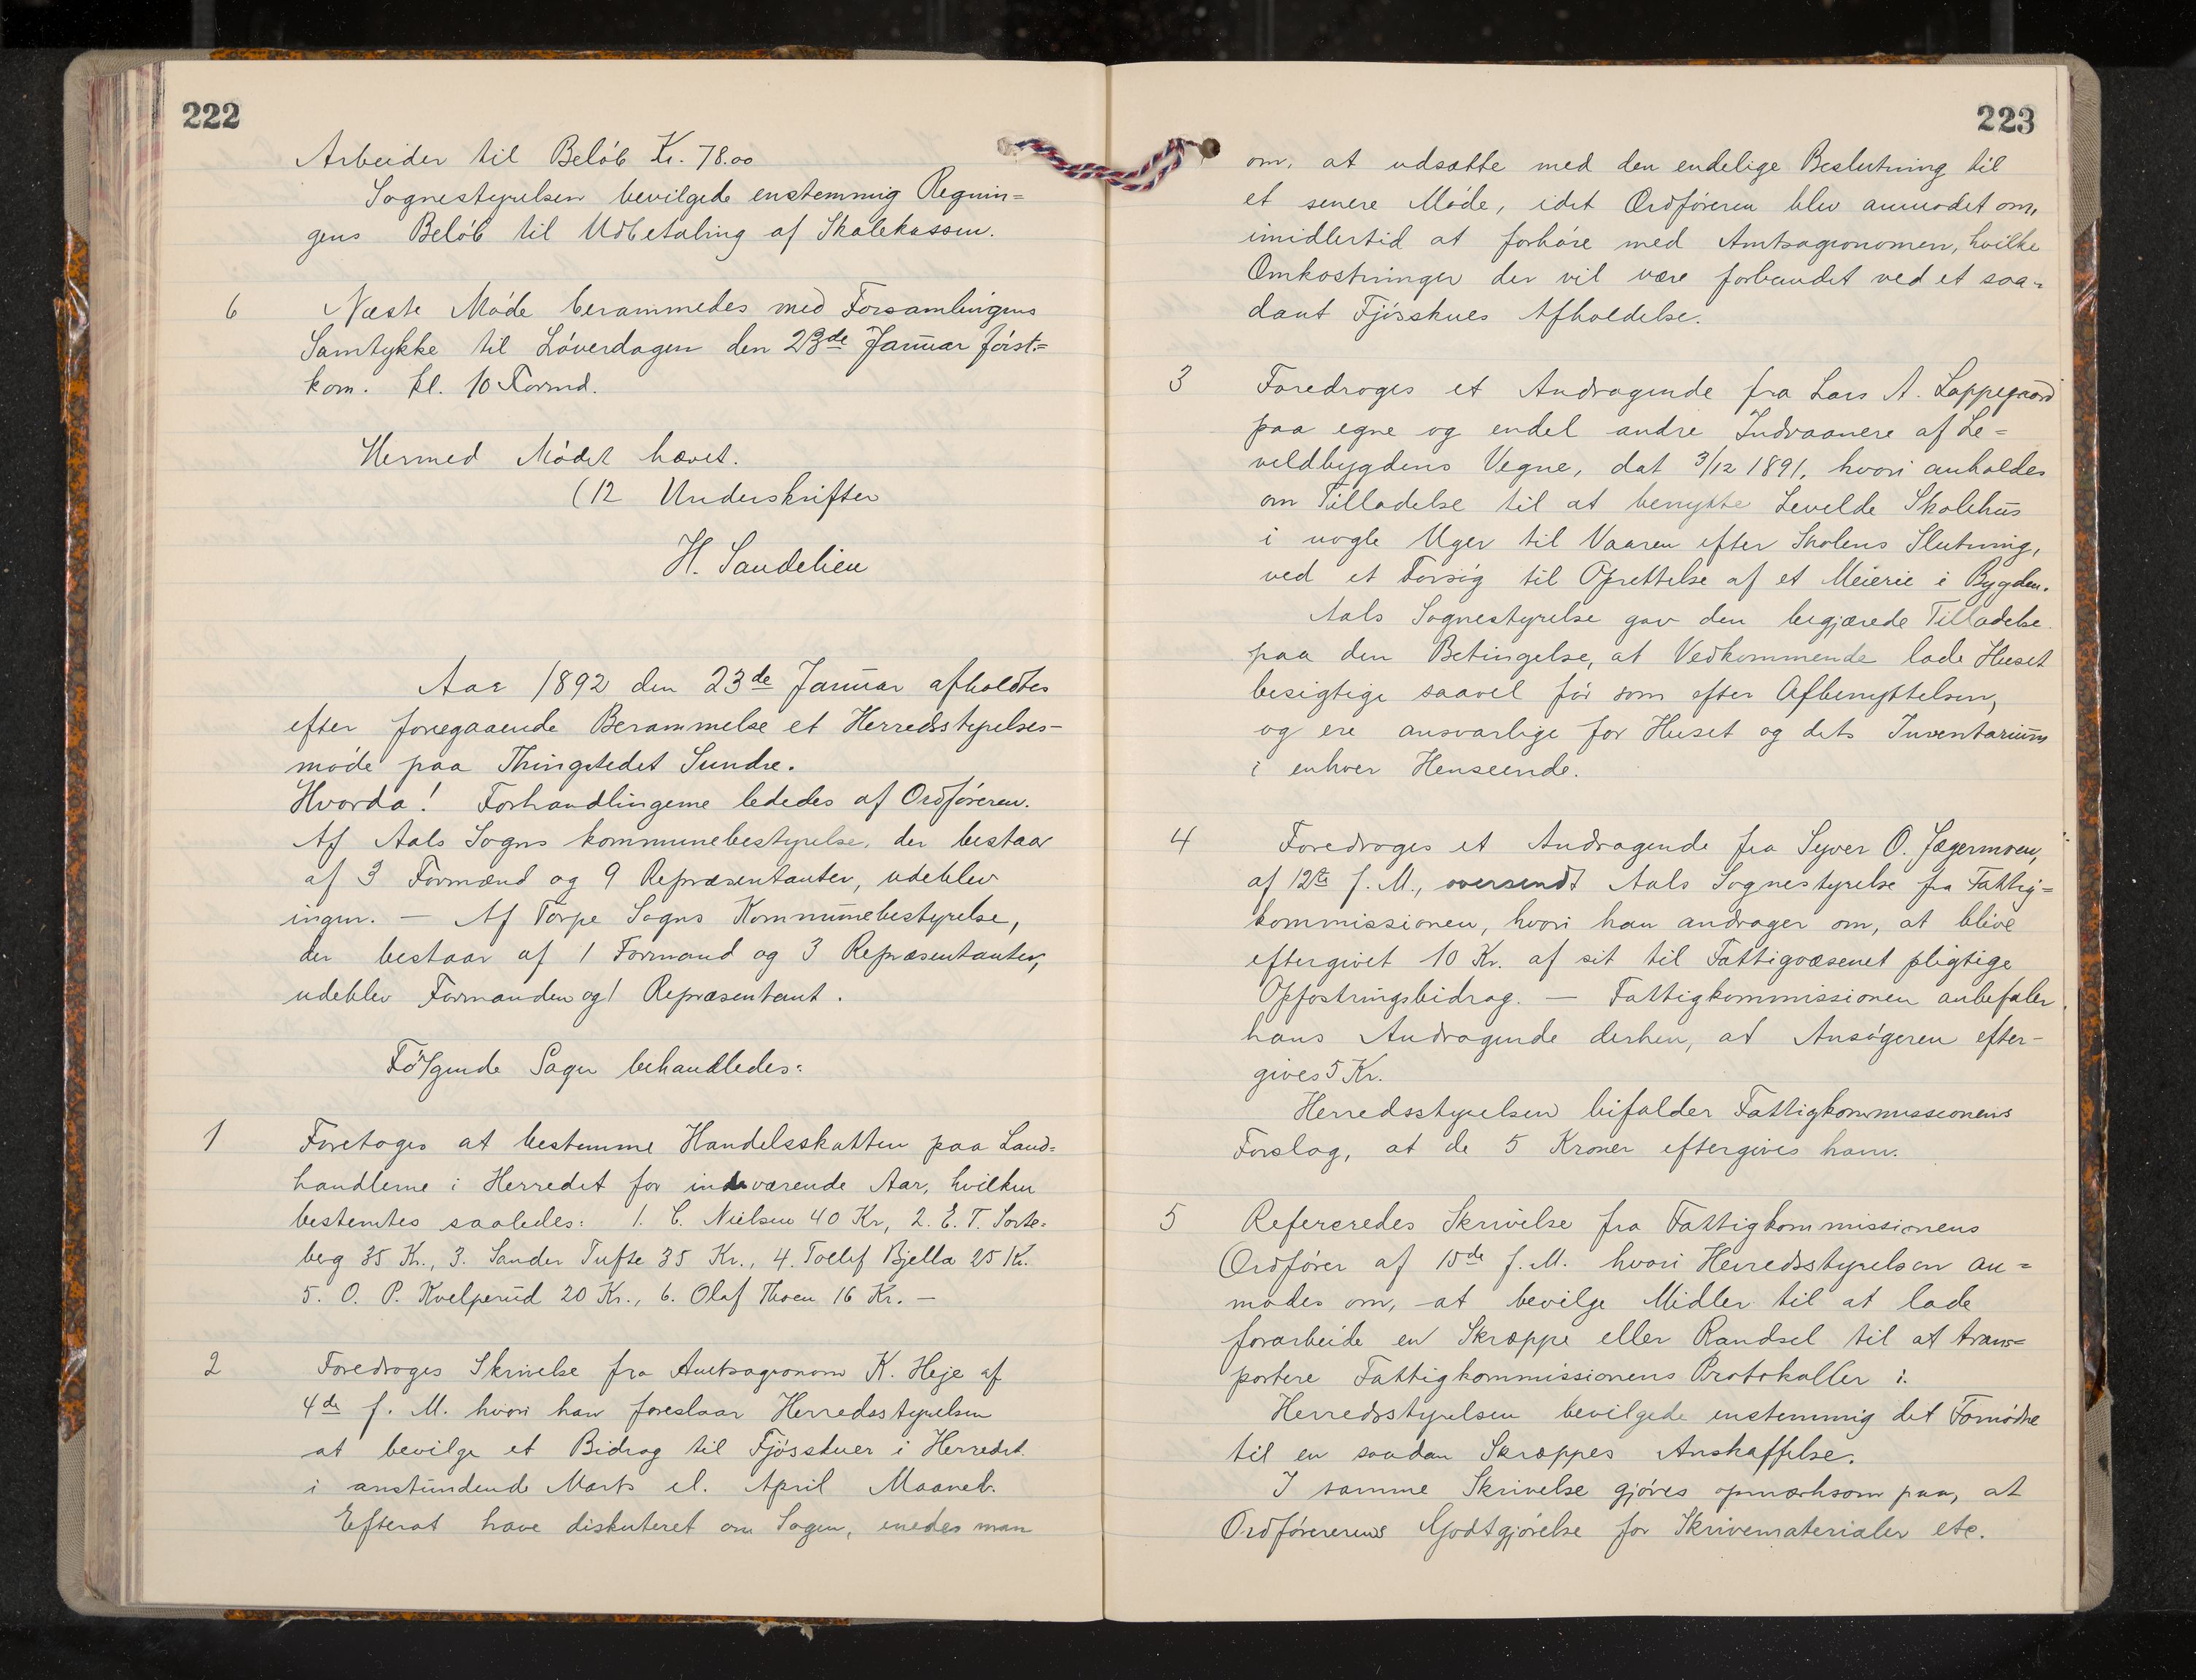 222
Arbeider til Beløb Kr. 78.00
Sognestyrelsen bevilgede enstemmig Regnin=
gens Beløb til Udbetaling af Skolekassen.
6 Næste Møde berammedes med Forsamlingens
Samtykke til Løverdagen den 23de Januar først.=
kom. kl. 10 Formd.
Hermed Mødet hævet.
(12 Underskrifter
H. Sandelien
Aar 1892 den 23de Januar afholdtes
efter foregaaende Berammelse et Herredsstyrelses-
møde paa Thingstedet Sundre.
Hvorda! Forhandlingerne lededes af Ordføreren.
Af Aals Sogns kommunebestyrelse, der bestaar
af 3 Formænd og 9 Repræsentanter, udeblev
ingen. — Af Torpe Sogns Kommunebestyrelse,
der bestaar af 1 Formand og 3 Repræsentanter,
udeblev Formanden og 1 Repræsentant.
Følgende Sager behandledes:
1 Foretoges at bestemme Handelsskatten paa Land=
handlerne i Herredet for indeværende Aar, hvilken
bestemtes saaledes: 1. C. Nielsen 40 Kr, 2. E. T. Sorte=
berg 35 Kr., 3. Sander Tufte 35 Kr., 4. Tollef Bjella 25 Kr.
5. O. P. Kvelperud 20 Kr., 6. Olaf Thoen 16 Kr. —
2 Foredroges Skrivelse fra Amtsagronom K. Heje af
4de f. M. hvori han foreslaar Herredsstyrelsen
at bevilge et Bidrag til Fjøsskuer i Herredet
i anstundende Marts el. April Maaned.
Efterat have diskuteret om Sagen, enedes man
223
om, at udsætte med den endelige Beslutning til
et senere Møde, idet Ordføreren blev anmodet om,
imidlertid at forhøre med Amtsagronomen, hvilke
Omkostninger der vil være forbundet ved et saa=
dant Fjøsskues Afholdelse.
3 Foredroges et Andragende fra Lars A. Lappegaard
paa egne og endel andre Indvaanere af Le=
veldbygdens Vegne, dat 3/12 1891, hvori anholdes
om Tilladelse til at benytte Levelde Skolehus
i nogle Uger til Vaaren efter Skolens Slutning,
ved et Forsøg til Oprettelse af et Meierie i Bygden.
Aals Sognestyrelse gav den begjærede Tilladelse
paa den Betingelse, at Vedkommende lade Huset
besigtige saavel før som efter Afbenyttelsen,
og ere ansvarlige for Huset og dets Inventarium
i enhver Henseende.
4 Foredroges et Andragende fra Syver O. Jægermoen,
af 12te f. M., oversendt Aals Sognestyrelse fra Fattig=
kommissionen, hvori han andrager om, at blive
eftergivet 10 Kr. af sit til Fattigvæsenet pligtige
Opfostringsbidrag. — Fattigkommissionen anbefaler
hans Andragende derhen, at Ansøgeren efter-
gives 5 Kr.
Herredsstyrelsen bifalder Fattigkommissionens
Forslag, at de 5 Kroner eftergives ham.
5 Refereredes Skrivelse fra Fattigkommissionens
Ordfører af 15de f. M. hvori Herredsstyrelsen an=
modes om, at bevilge Midler til at lade
forarbeide en Skræppe eller Randsel til at trans=
portere Fattigkommissionens Protokoller i.
Herredsstyrelsen bevilgede enstemmig det Fornødne
til en saadan Skræppes Anskaffelse.
I samme Skrivelse gjøres opmærksom paa, at
Ordførerens Godtgjørelse for Skrivematerialer etc.